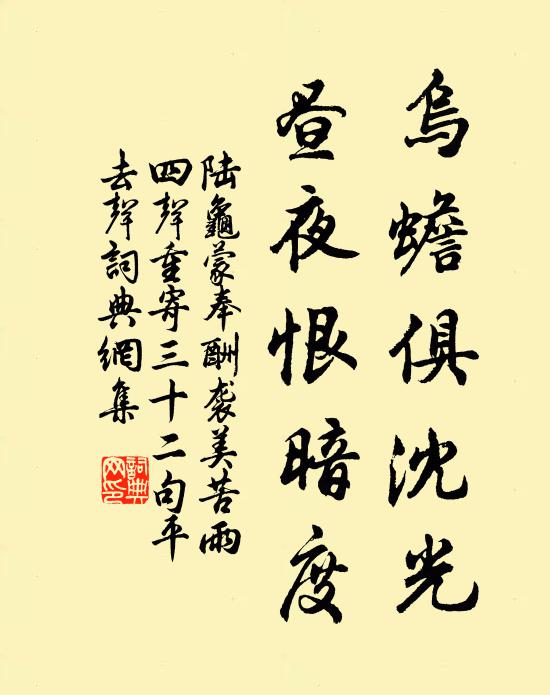 烏蟾俱沈光
昼夜恨暗度
陆龜蒙奉酬袭美苦雨
四聲重寄三十二句平
去聲詞典網集
詞典
网印